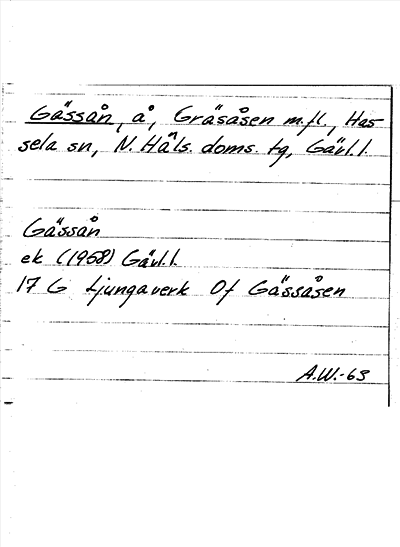 Gässån, å, Gräsåsen m.fl., Has-
sela sn, N. Häls. doms. tg, Gävl.l.
Gässån
ek (1958) Gävl.l.
17 G Ljungaverk Of Gässåsen
A.W.-63